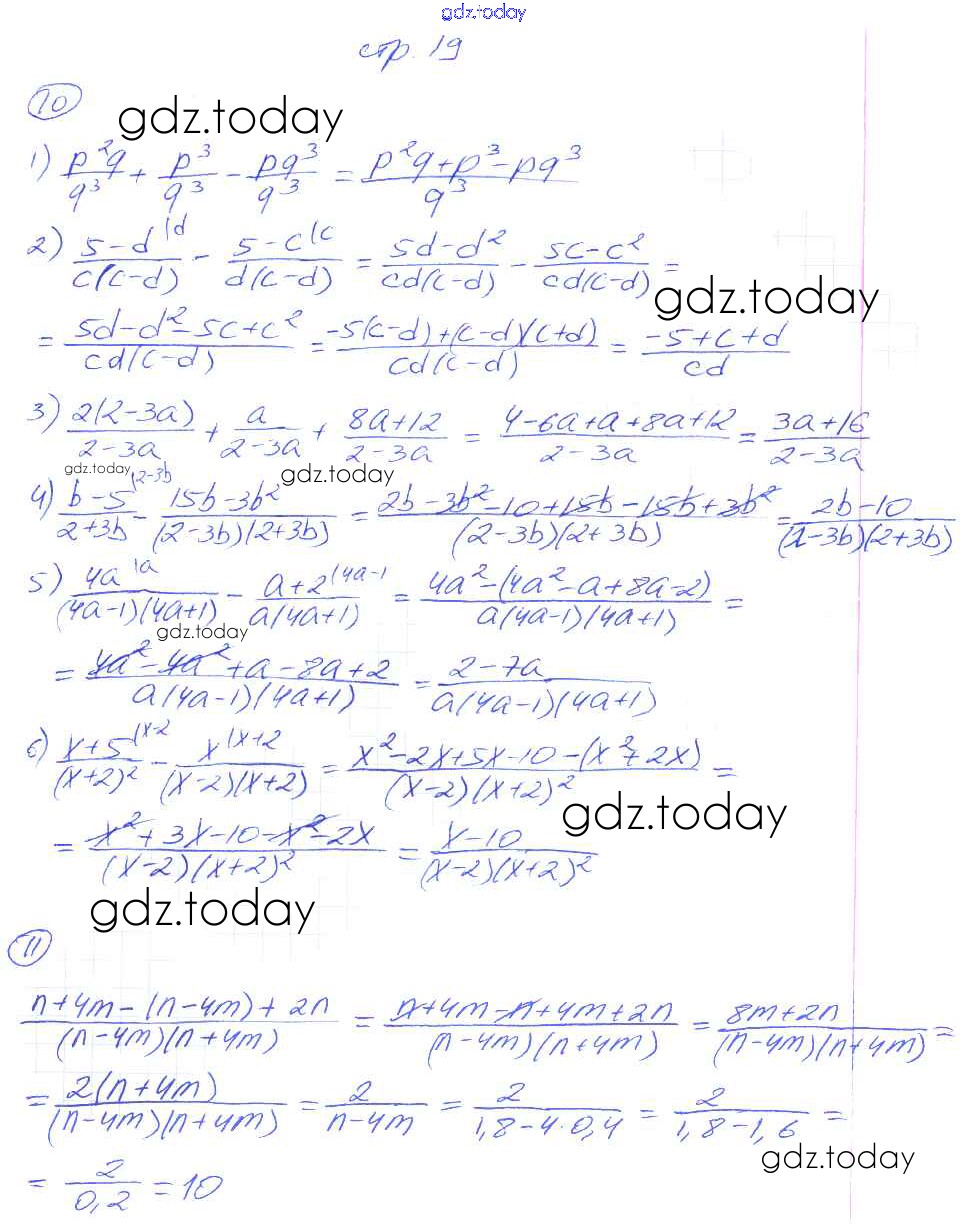 gdz.today
стр. 19
10
gdz.today
1) p²q/q³ + p³/q³ - pq³/q³ = (p²q+p³-pq³)/q³
2) (5-d^(d)/(c(c-d)) - (5-c^(c)/(d(c-d)) = (5d-d²)/(cd(c-d)) - (5c-c²)/(cd(c-d)) =
gdz.today
= (5d-d²-5c+c²)/(cd(c-d)) = (-5(c-d)+(c-d)(c+d))/(cd(c-d)) = (-5+c+d)/(cd)
3) 2(2-3a)/(2-3a) + a/(2-3a) + (8a+12)/(2-3a) = (4-6a+a+8a+12)/(2-3a) = (3a+16)/(2-3a)
gdz.today gdz.today
4) (b-5^(2-3b)/(2+3b) - (15b-3b²)/((2-3b)(2+3b)) = (2b-3b²-10+15b-15b+3b²)/((2-3b)(2+3b)) = (2b-10)/((2-3b)(2+3b))
5) 4a^(a/((4a-1)(4a+1)) - (a+2^(4a-1)/(a(4a+1)) = (4a²-(4a²-a+8a-2))/(a(4a-1)(4a+1)) =
gdz.today
= (4a²-4a²+a-8a+2)/(a(4a-1)(4a+1)) = (2-7a)/(a(4a-1)(4a+1))
6) (x+5^(x-2)/(x+2)² - x^(x+2/((x-2)(x+2)) = (x²-2x+5x-10-(x²+2x))/((x-2)(x+2)²) =
gdz.today
= (x²+3x-10-x²-2x)/((x-2)(x+2)²) = (x-10)/((x-2)(x+2)²)
gdz.today
11
(n+4m-(n-4m)+2n)/((n-4m)(n+4m)) = (n+4m-n+4m+2n)/((n-4m)(n+4m)) = (8m+2n)/((n-4m)(n+4m)) =
= 2(n+4m)/((n-4m)(n+4m)) = 2/(n-4m) = 2/(1,8-4·0,4) = 2/(1,8-1,6) =
gdz.today
= 2/0,2 = 10